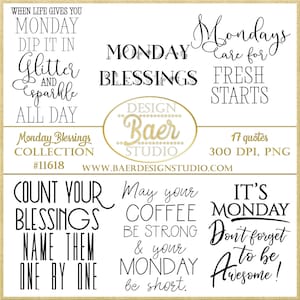 WHEN LIFE GIVES YOU
MONDAY
DIP IT IN
Glitter
and
sparkle
ALL DAY
MONDAY
BLESSINGS
Mondays
Are for
FRESH
STARTS
Monday Blessings
COLLECTION
#11618
DESIGN
Baer
STUDIO
17 quotes
300 DPI, PNG
WWW.BAERDESIGNSTUDIO.COM
COUNT YOUR
BLESSINGS
NAME THEM
ONE BY ONE
May your
COFFEE
BE STRONG
& your
MONDAY
be short.
IT'S
MONDAY
Don't forget
to be
Awesome!